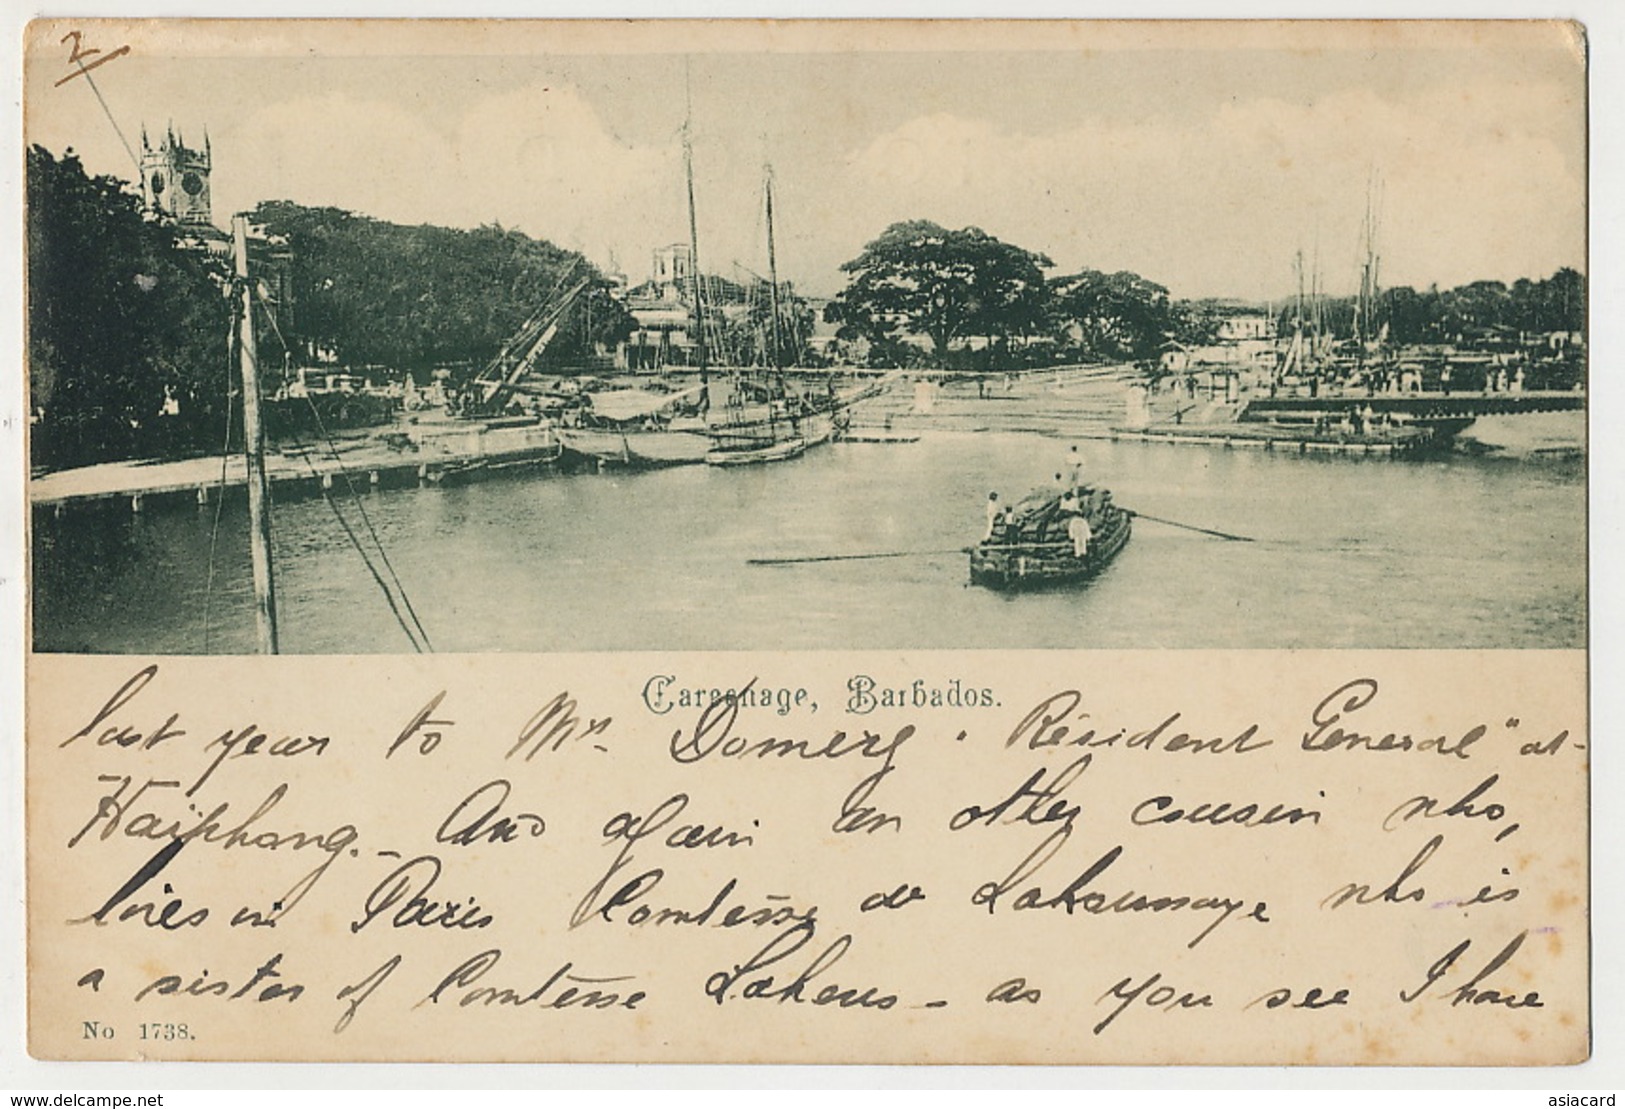 2
Careenage, Barbados.
last year to Mr. Domerg. "Résident General" at-
Haïphong. _ And again an other cousin who,
lives in Paris Comtesse de
who is
a sister of Comtesse - as you see I have
No 1738.
www.delcampe.net
asiacard